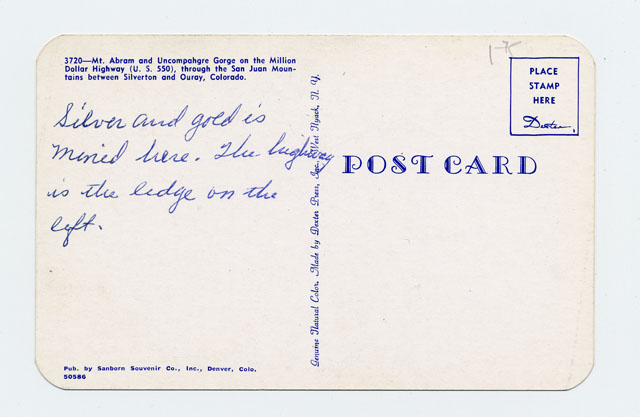 3720—Mt. Abram and Uncompahgre Gorge on the Million
Dollar Highway (U. S. 550), through the San Juan Moun-
tains between Silverton and Ouray, Colorado.
Silver and gold is
mined here. The highway
is the ledge on the
left.
Pub. by Sanborn Souvenir Co., Inc., Denver, Colo.
50586
Genuine Natural Color. Made by Dexter Press, Inc. West Nyack, N. Y.
POST CARD
PLACE
STAMP
HERE
Dexter